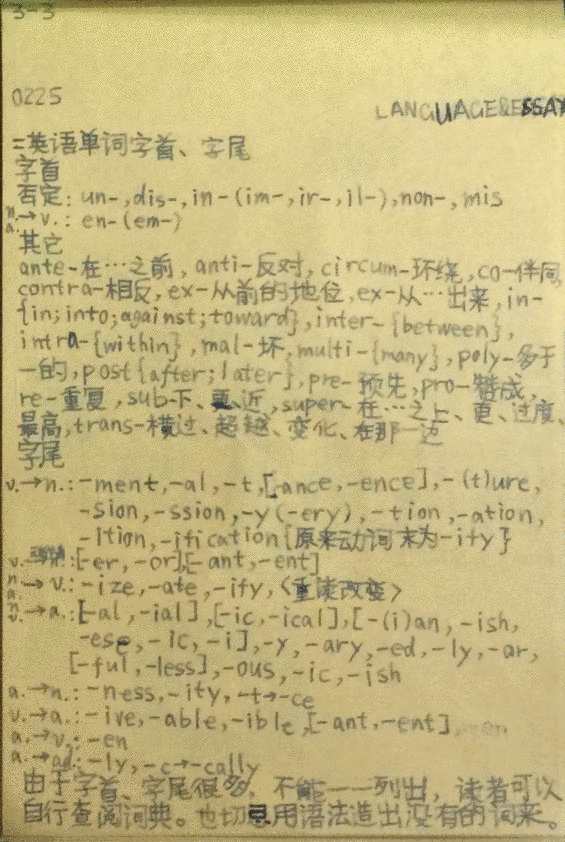 3-3
0225
LANGUAGE&ESSAY
二英语单词字首、字尾
字首
否定: un-, dis-, in-(im-, ir-, il-), non-, mis
n. a. → v.: en-(em-)
其它
ante-在…之前, anti-反对, circum-环绕, co-伴同,
contra-相反, ex-从前的地位, ex-从…出来, in-
{in; into; against; toward}, inter-{between},
intra-{within}, mal-坏, multi-{many}, poly-多于
一的, post{after; later}, pre-预先, pro-赞成,
re-重复, sub-下、更近, super-在…之上、更、过度、
最高, trans-横过、超越、变化、在那一边
字尾
v.→n.: -ment, -al, -t, [-ance, -ence], -(t)ure,
-sion, -ssion, -y(-ery), -tion, -ation,
-ition, -ification{原来动词末为-ify}
v. [-er, -or][-ant, -ent]
n. a. → v.: -ize, -ate, -ify, <重读改变>
n. v. →a.: [-al, -ial], [-ic, -ical], [-(i)an, -ish,
-ese, -ic, -i], -y, -ary, -ed, -ly, -ar,
[-ful, -less], -ous, -ic, -ish
a.→n.: -ness, -ity, -t→-ce
v.→a.: -ive, -able, -ible, [-ant, -ent],
a.→v.: -en
a.→ad.: -ly, -c→-cally
由于字首、字尾很多, 不能一一列出, 读者可以
自行查阅词典。也切忌用语法造出没有的词来。